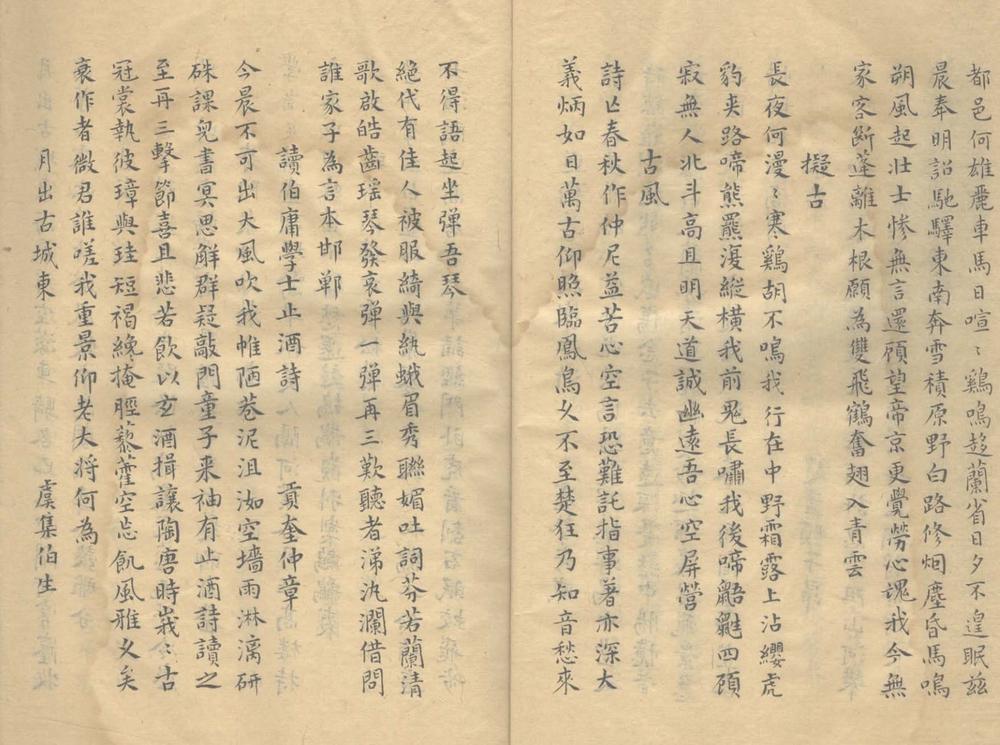 都邑何雄麗車馬日喧〻鷄鳴趍蘭省日夕不遑眠兹
晨奉明詔馳驛東南奔雪積原野白路修烟塵昏馬鳴
朔風起壮士慘無言還顧望帝京更覺勞心塊我今無
家客斷蓬離木根願為雙飛鶴奮翅入青雲
擬古
長夜何漫〻寒鷄胡不鳴我行在中野霜露上沾纓虎
豹夹路啼熊羆復縱横我前鬼長嘯我後啼鼯鼪四顧
寂無人北斗高且明天道誠幽遠吾心空屏營
古風
詩亡春秋作仲尼益苦心空言恐難託指事著亦深大
義炳如日萬古仰照臨鳳鳥久不至楚狂乃知音愁來
不得語起坐弾吾琴
絶代有佳人被服綺與紈蛾眉秀聯媚吐詞芬若蘭清
歌啟皓齒瑶琴發哀弾一弾再三歎聽者涕汍瀾借問
誰家子為言本邯鄲
讀伯庸學士止酒詩　貢奎仲章
今晨不可出大風吹我帷陋巷泥沮洳空墻雨淋漓研
硃課兒書冥思解群疑敲門童子来袖有止酒詩讀之
至再三擊節喜且悲若飲以玄酒揖讓陶唐時峩〻古
冠裳執彼璋與珪短褐纔掩脛藜藿空忘飢風雅久矣
衰作者微君誰嗟我重景仰老大将何為
月出古城東　虞集伯生